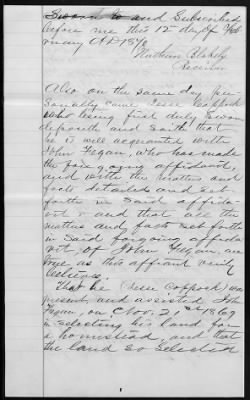 Sworn to and Subscribed
before me this 12 day of Feb
ruary A.D. 187
Nathan Blakely
Receiver
Also on the same day per-
sonally came Jesse Coppock
who being first duly sworn
deposeth and saith that
he is well acquainted with
John Fegan, who has made
the foregoing affidavit,
and with the matters and
facts detailed and set
forth in said affida-
vit & and that all the
matters and facts set forth
in said forgoing affida
vit of John Fegan, are
true as this affiant verily
believes.
That he (Jesse Coppock) was
present, and assisted John
Fegan, on Nov. 21st 1869
in selecting his land, for
a homestead, and that
the land so selected